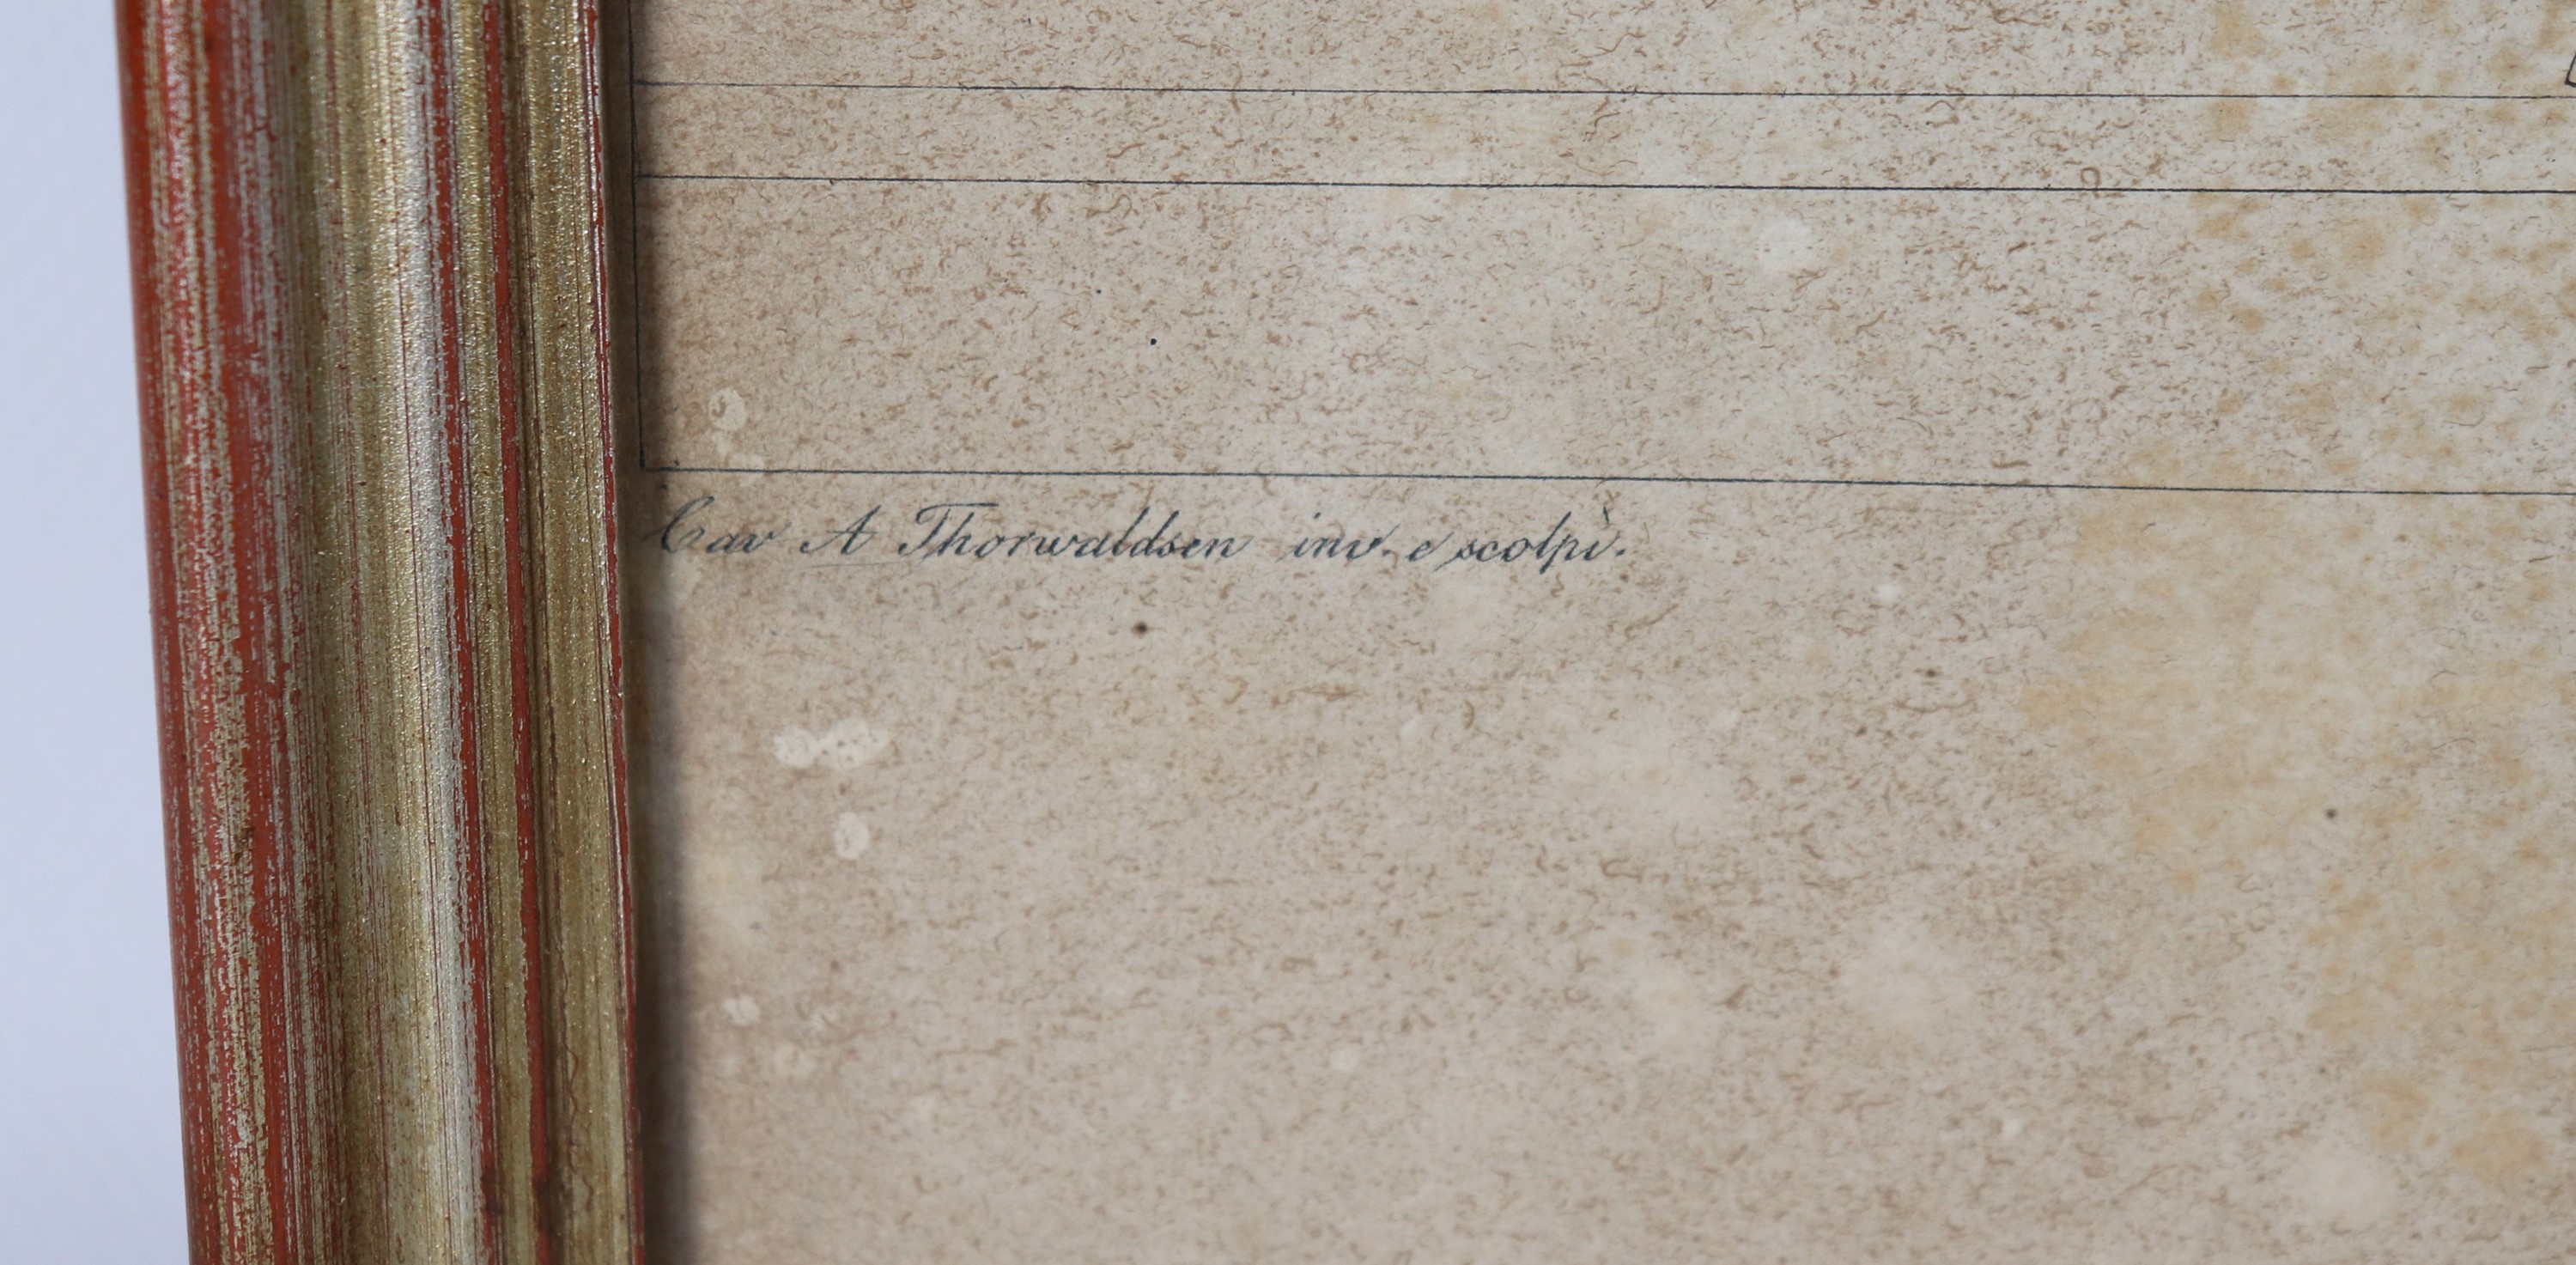 Cav A Thorwaldsen inv. e scolpì.